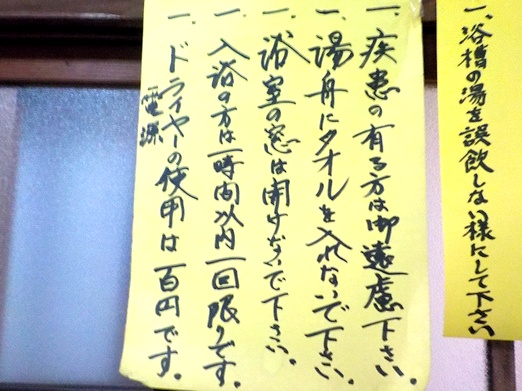 一、浴槽の湯を誤飲しない様にして下さい
一、疾患の有る方は御遠慮下さい。
一、湯舟にタオルを入れないで下さい。
一、浴室の窓は開けないで下さい。
一、入浴の方は一時間以内一回限りです。
一、ドライヤーの使用は一百円です。
電源